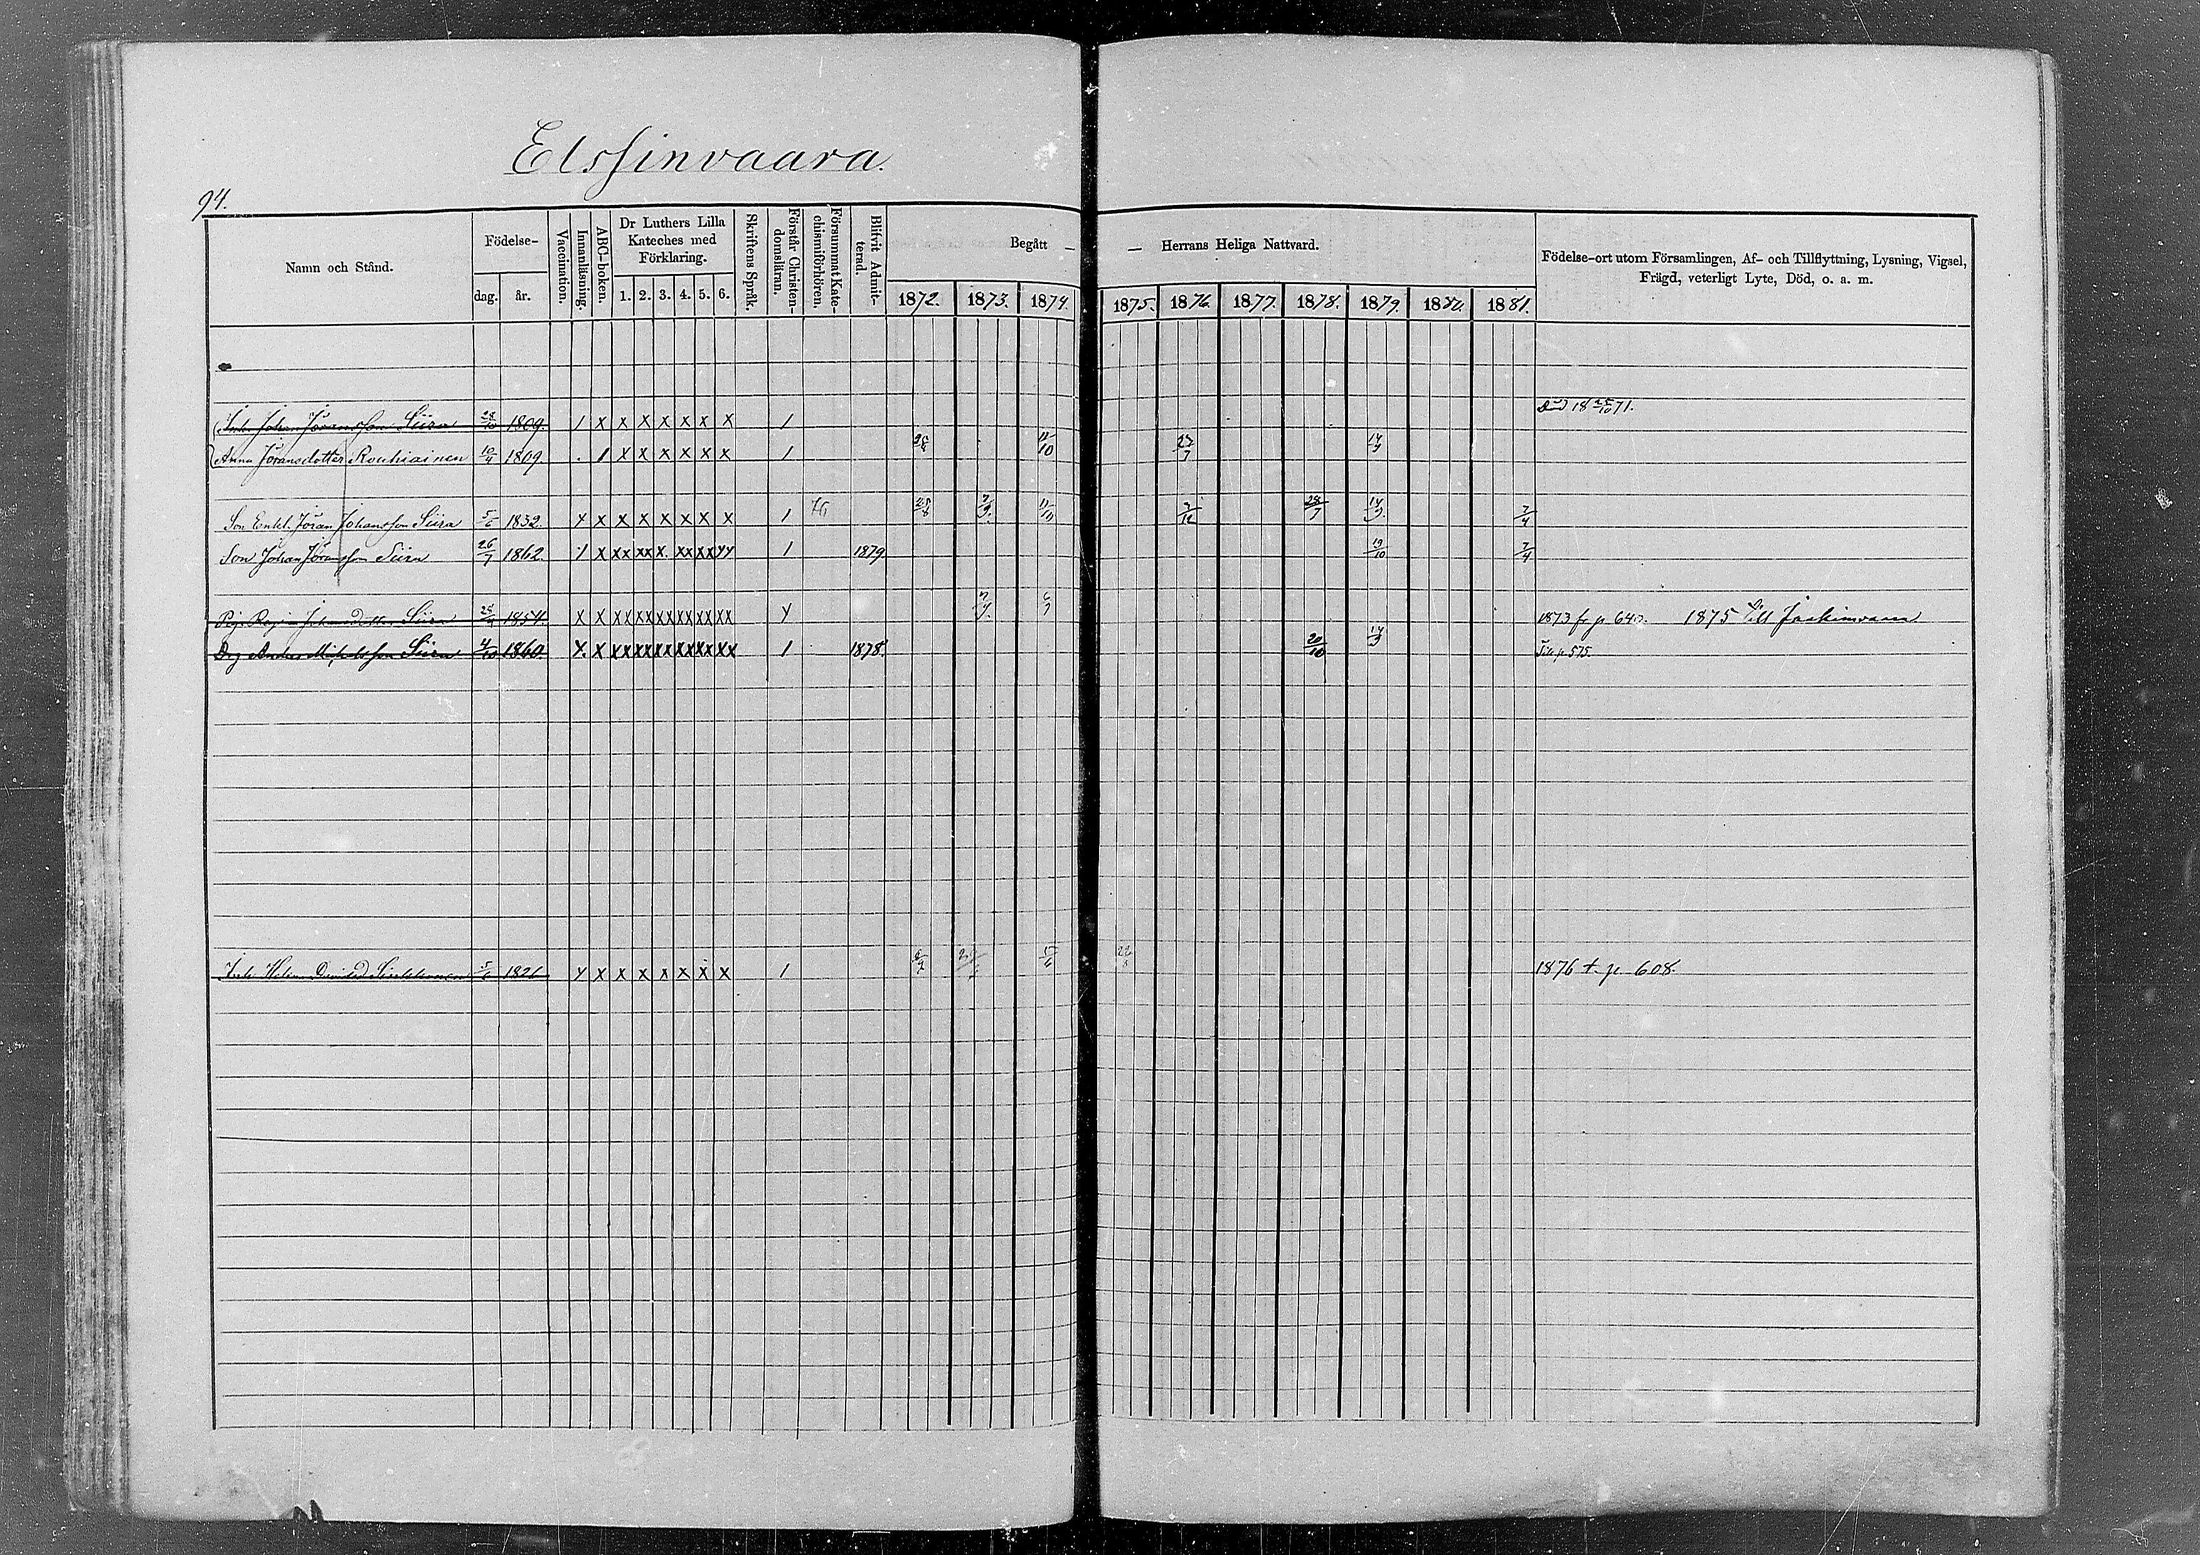 Elssinvaara.
94.
Namn och Stånd. Födelse- dag. år. Vaccination. Innanläsning. ABC-boken. Dr Luthers Lilla Kateches med Förklaring. 1. 2. 3. 4. 5. 6. Skriftens Språk. Förstår Christendomsläran. Försummat Katechismiförhören. Blifvit Admitterad. Begått — — Herrans Heliga Nattvard. 1872. 1873. 1874. 1875. 1876. 1877. 1878. 1879. 1880. 1881. Födelse-ort utom Församlingen, Af- och Tillflyttning, Lysning, Vigsel, Frägd, veterligt Lyte, Död, o. a. m.
Johan Jöransson Siira 28/10 1809. 1 x x x x x x x 1 Död 18 25/10 71.
Anna Jöransdotter Rouhiainen 10/4 1809 . 1 x x x x x x 1 11/10 23/7 14/9
Son Enkl. Jöran Johansson Siira 5/6 1832. x x x x x x x x 1 76 25/8 7/9. 11/10 3/12 28/7 14/9. 3/4
Son Johan Jöransson Siira 26/7 1862. 1 x xx xx x. xx xx xx 1 1879 19/10 3/4
Pig. Siira 1854. x x xx xx xx xx xx xx 1873 fr p 640. 1875 till Joukimvaara
Drg Anders Siira 4/10 1860. x. x xx xx xx xx xx xx 1 1878. 20/10 14/9 Till p 575.
Helena 5/6 1826 x x x x x x x x 1 5/6 1876 t. p. 608.